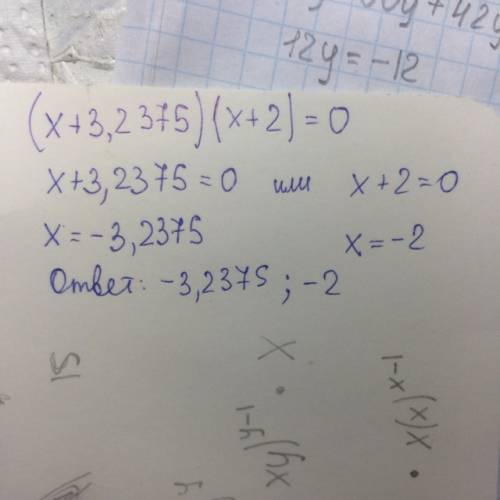 42y
12y = -12
(x+3,2375)(x+2)=0
x+3,2375=0 или x+2=0
x=-3,2375 x=-2
Ответ: -3,2375; -2